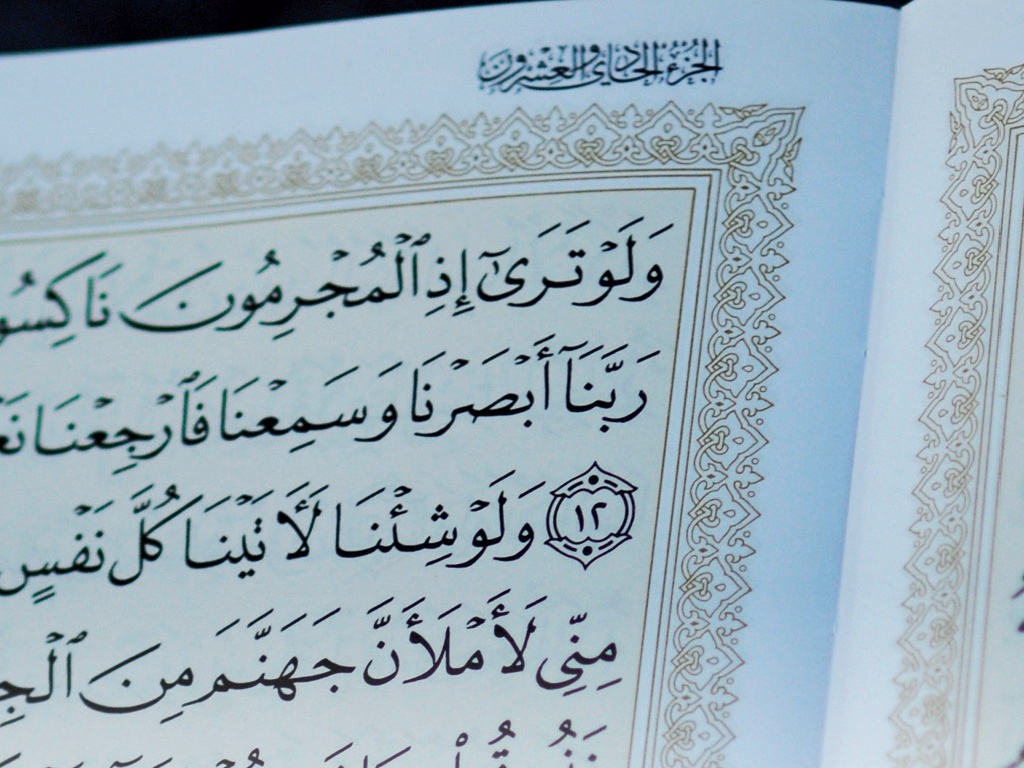 الجزء الحادي والعشرون
وَلَوْ تَرَىٰٓ إِذِ ٱلْمُجْرِمُونَ
رَبَّنَآ أَبْصَرْنَا وَسَمِعْنَا فَٱرْجِعْنَا
١٢ وَلَوْ شِئْنَا لَأٓتَيْنَا كُلَّ نَفْسٍ
مِنِّى لَأَمْلَأَنَّ جَهَنَّمَ مِنَ